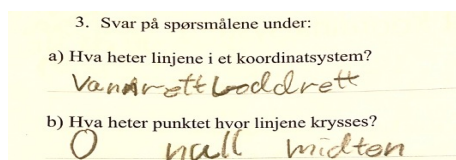 3. Svar på spørsmålene under:
a) Hva heter linjene i et koordinatsystem?
Vannrett Loddrett
b) Hva heter punktet hvor linjene krysses?
O null midten